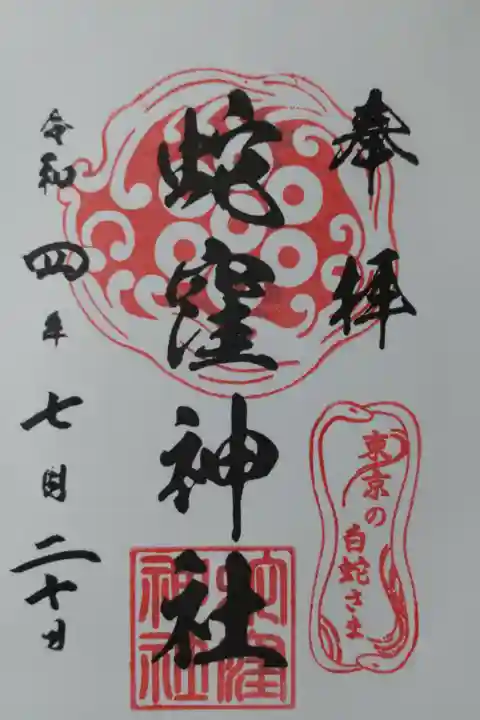 奉拝
蛇窪神社
蛇窪
神社
東京の
白蛇さま
令和四年七月二十日